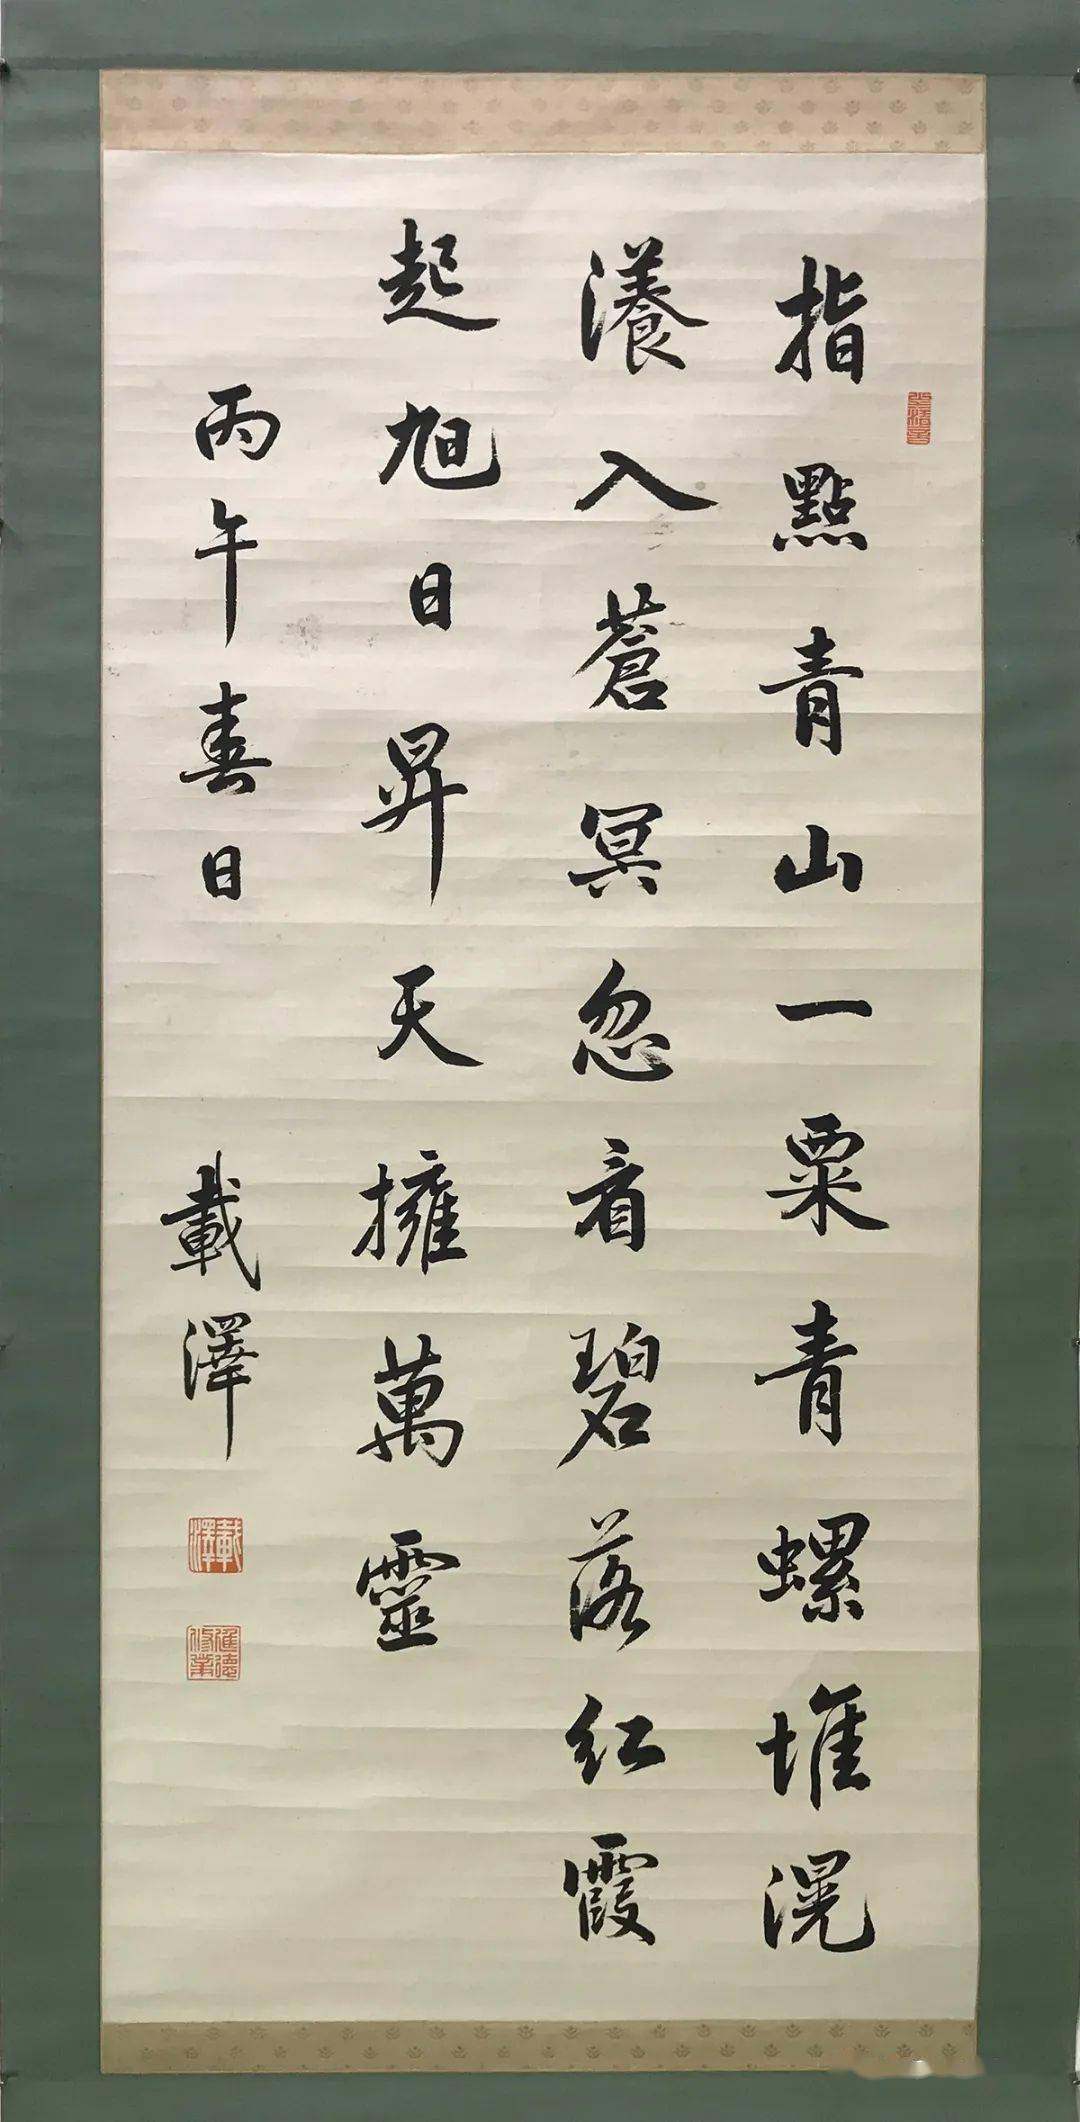 指點青山一粟青螺堆滉
瀁入蒼冥忽看碧落红霞
起旭日昇天擁萬靈
丙午春日 載澤
載澤
進德修業